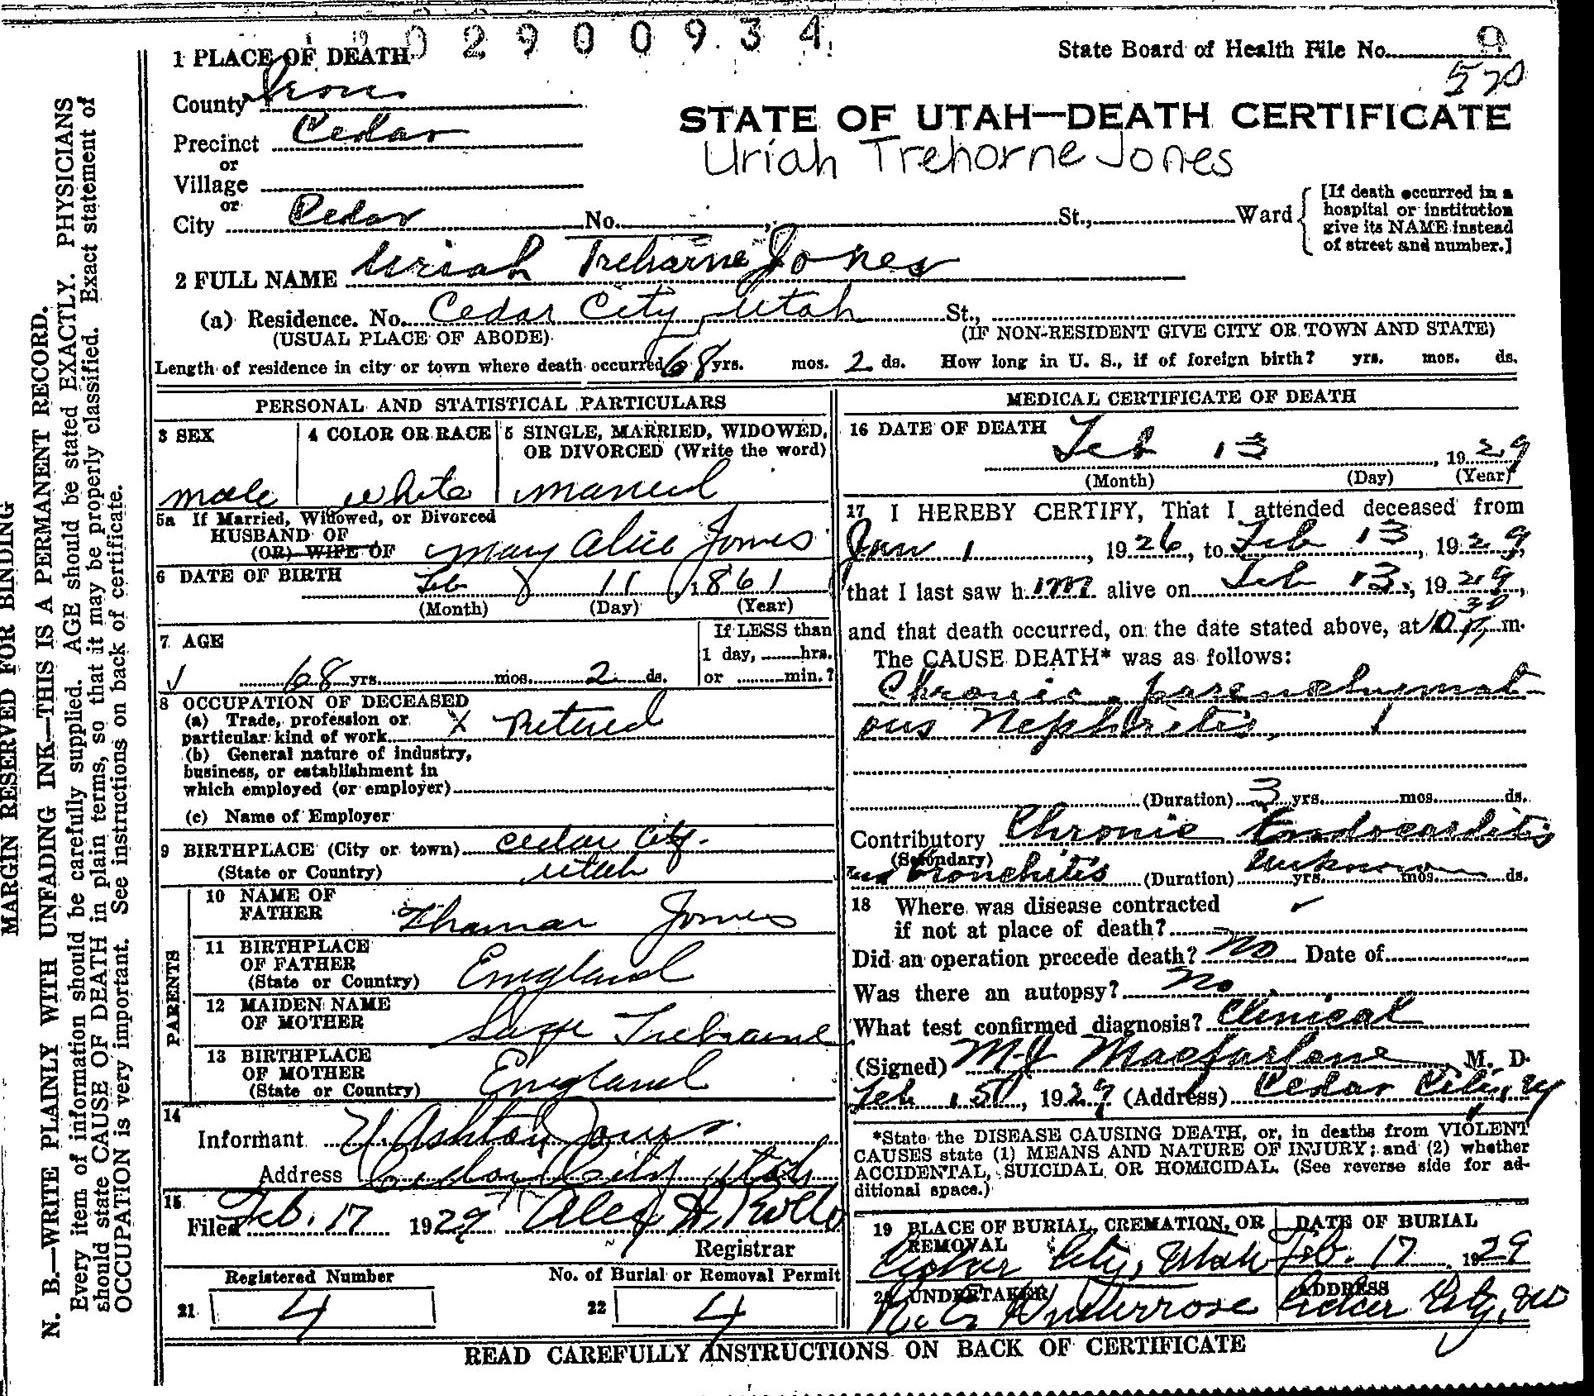 2900934
State Board of Health File No. 9
570
1 PLACE OF DEATH
County Iron
STATE OF UTAH—DEATH CERTIFICATE
Precinct Cedar
Uriah Trehorne Jones
or
Village
or
City Cedar No. St., Ward
[If death occurred in a
hospital or institution
give its NAME instead
of street and number.]
2 FULL NAME Uriah Treharne Jones
(a) Residence. No. Cedar City, Utah St.,
(USUAL PLACE OF ABODE) (IF NON-RESIDENT GIVE CITY OR TOWN AND STATE)
Length of residence in city or town where death occurred 68 yrs. mos. 2 ds. How long in U. S., if of foreign birth? yrs. mos. ds.
PERSONAL AND STATISTICAL PARTICULARS
3 SEX
male
4 COLOR OR RACE
white
5 SINGLE, MARRIED, WIDOWED,
OR DIVORCED (Write the word)
married
5a If Married, Widowed, or Divorced
HUSBAND OF
(OR) WIFE OF Mary Alice Jones
6 DATE OF BIRTH Feb 11 1861
(Month) (Day) (Year)
7 AGE
68 yrs. mos. 2 ds.
If LESS than
1 day, hrs.
or min.?
8 OCCUPATION OF DECEASED
(a) Trade, profession or
particular kind of work X Retired
(b) General nature of industry,
business, or establishment in
which employed (or employer)
(c) Name of Employer
9 BIRTHPLACE (City or town) Cedar City.
(State or Country) Utah
PARENTS
10 NAME OF
FATHER Thomas Jones
11 BIRTHPLACE
OF FATHER
(State or Country) England
12 MAIDEN NAME
OF MOTHER Sage Trehraine
13 BIRTHPLACE
OF MOTHER
(State or Country) England
14
Informant U Ashton Jones
Address Cedar City Utah
15
Filed Feb. 17 1929 Alex H. Rollo
Registrar
Registered Number
21 4
No. of Burial or Removal Permit
22 4
MEDICAL CERTIFICATE OF DEATH
16 DATE OF DEATH Feb 13, 1929
(Month) (Day) (Year)
17 I HEREBY CERTIFY, That I attended deceased from
Jan 1, 1926, to Feb 13, 1929,
that I last saw him alive on Feb 13, 1929,
and that death occurred, on the date stated above, at 10 30 m.
The CAUSE DEATH* was as follows:
Chronic parenchymat-
ous Nephritis,
(Duration) 3 yrs. mos. ds.
Contributory Chronic Endocarditis
(Secondary)
and bronchitis (Duration) unknown yrs. mos. ds.
18 Where was disease contracted
if not at place of death?
Did an operation precede death? No Date of
Was there an autopsy? No
What test confirmed diagnosis? Clinical
(Signed) M J Macfarlane, M. D.
Feb 15, 1929 (Address) Cedar City, U
*State the DISEASE CAUSING DEATH, or, in deaths from VIOLENT
CAUSES state (1) MEANS AND NATURE OF INJURY; and (2) whether
ACCIDENTAL, SUICIDAL OR HOMICIDAL. (See reverse side for ad-
ditional space.)
19 PLACE OF BURIAL, CREMATION, OR
REMOVAL
Cedar City, Utah
DATE OF BURIAL
Feb. 17 1929
20 UNDERTAKER
ADDRESS
Cedar City, Ut
READ CAREFULLY INSTRUCTIONS ON BACK OF CERTIFICATE
MARGIN RESERVED FOR BINDING
N. B.—WRITE PLAINLY WITH UNFADING INK—THIS IS A PERMANENT RECORD.
Every item of information should be carefully supplied. AGE should be stated EXACTLY. PHYSICIANS
should state CAUSE OF DEATH in plain terms, so that it may be properly classified. Exact statement of
OCCUPATION is very important. See instructions on back of certificate.